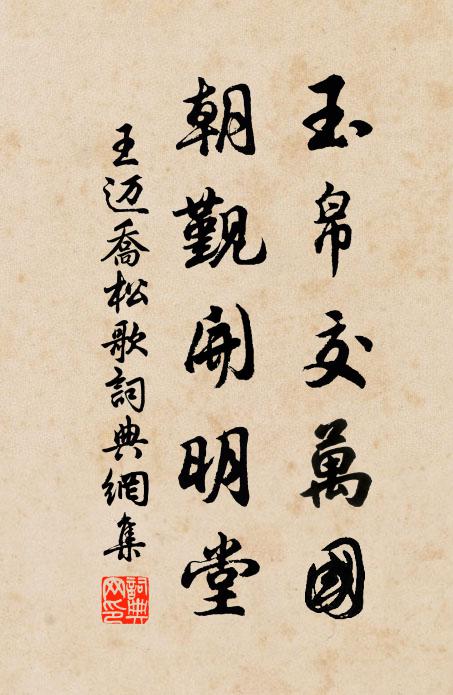 玉帛交萬國
朝觀開明堂
王迈喬松歌詞典網集
詞典網印